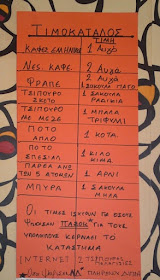 ΤΙΜΟΚΑΤΑΛΟΓΟΣ
ΤΙΜΗ
ΚΑΦΕΣ ΕΛΛΗΝΙΚΟΣ 1 Αυγό
ΝΕΣ. ΚΑΦΕ. 2 Αυγά
ΦΡΑΠΕ 2 Αυγά
1 ΣΑΚΟΥΛΑ ΓΑΛΟ
ΤΣΙΠΟΥΡΟ ΣΚΕΤΟ 1 ΣΑΚΟΥΛΑ
ΡΑΔΙΚΙΑ
ΤΣΙΠΟΥΡΟ ΜΕ ΜΕΖΕ 1 ΜΠΑΛΑ
ΤΡΙΦΥΛΛΙ
ΠΟΤΟ ΑΠΛΟ 1 ΚΟΤΑ.
ΠΟΤΟ ΣΠΕΣΙΑΛ 1 ΚΙΛΟ
ΚΙΜΑ
ΠΑΡΕΑ ΑΝΩ ΤΩΝ 5 ΑΤΟΜΩΝ 1 ΑΡΝΙ
ΜΠΥΡΑ 1 ΣΑΚΟΥΛΑ
ΜΗΛΑ
ΟΙ ΤΙΜΕΣ ΙΣΧΥΟΥΝ ΓΙΑ ΟΣΟΥΣ
ΨΗΦΙΣΑΝ ΠΑΣΟΚ ΓΙΑ ΤΟΥΣ
ΥΠΟΛΟΙΠΟΥΣ ΚΕΡΝΑΕΙ ΤΟ
ΚΑΤΑΣΤΗΜΑ
INTERNET 2 ΤΣΙΠΟΥΡΑ